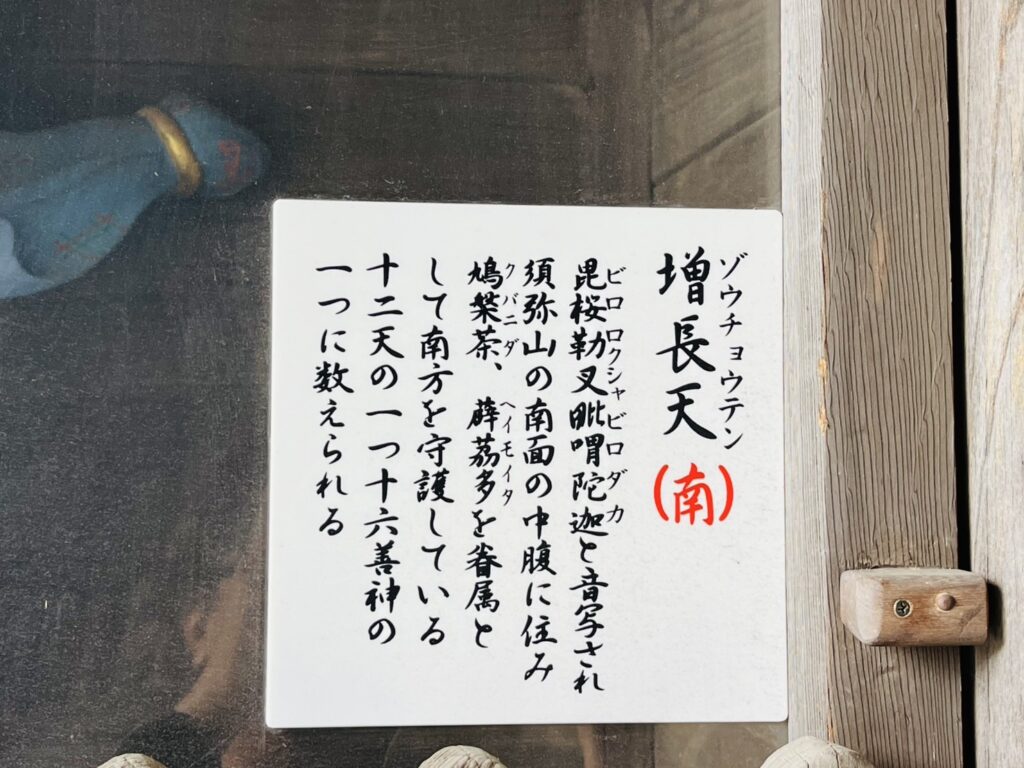 増長天(南)
ゾウチョウテン
毘桜勒叉毗喟陀迦と音写され
ビロロクシャビロダカ
須弥山の南面の中腹に住み
鳩槃荼、薜茘多を眷属と
クバニダ ヘイモイタ
して南方を守護している
十二天の一つ十六善神の
一つに数えられる